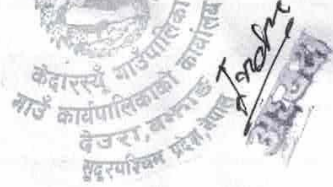 केदारस्युँ गाउँपालिका
गाउँ कार्यपालिकाको कार्यालय
देउरा, बझाङ
सुदूरपश्चिम प्रदेश, नेपाल